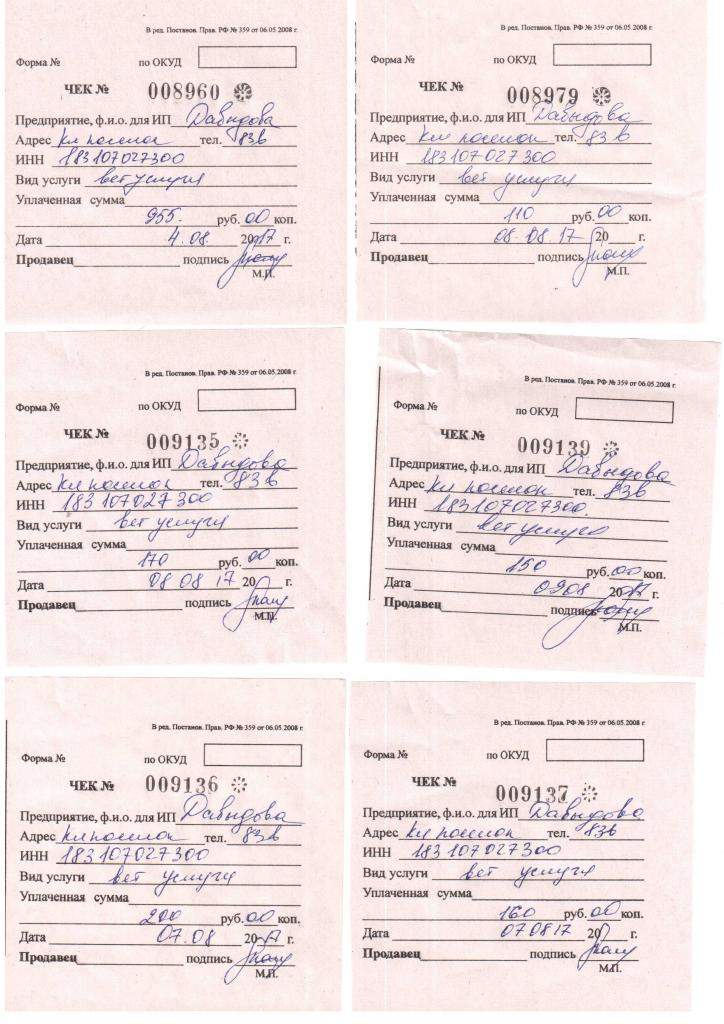 В ред. Постанов. Прав. РФ № 359 от 06.05.2008 г.
Форма № по ОКУД
ЧЕК № 008960
Предприятие, ф.и.о. для ИП Давыдова
Адрес кл поселок тел. 83в
ИНН 183107027300
Вид услуги вет услуги
Уплаченная сумма
955 руб. 00 коп.
Дата 4.08. 2017 г.
Продавец подпись
М.П.
В ред. Постанов. Прав. РФ № 359 от 06.05.2008 г.
Форма № по ОКУД
ЧЕК № 008979
Предприятие, ф.и.о. для ИП Давыдова
Адрес кл поселок тел. 83в
ИНН 183107027300
Вид услуги вет услуги
Уплаченная сумма
110 руб. 00 коп.
Дата 08.08.17 20 г.
Продавец подпись
М.П.
В ред. Постанов. Прав. РФ № 359 от 06.05.2008 г.
Форма № по ОКУД
ЧЕК № 009135
Предприятие, ф.и.о. для ИП Давыдова
Адрес кл поселок тел. 83в
ИНН 183107027300
Вид услуги вет услуги
Уплаченная сумма
170 руб. 00 коп.
Дата 08 08 17 20 г.
Продавец подпись
М.П.
В ред. Постанов. Прав. РФ № 359 от 06.05.2008 г.
Форма № по ОКУД
ЧЕК № 009139
Предприятие, ф.и.о. для ИП Давыдова
Адрес кл поселок тел. 83в
ИНН 183107027300
Вид услуги вет услуги
Уплаченная сумма
150 руб. 00 коп.
Дата 0908 2017 г.
Продавец подпись
М.П.
В ред. Постанов. Прав. РФ № 359 от 06.05.2008 г.
Форма № по ОКУД
ЧЕК № 009136
Предприятие, ф.и.о. для ИП Давыдова
Адрес кл поселок тел. 83в
ИНН 183107027300
Вид услуги вет услуги
Уплаченная сумма
200 руб. 00 коп.
Дата 07.08 2017 г.
Продавец подпись
М.П.
В ред. Постанов. Прав. РФ № 359 от 06.05.2008 г.
Форма № по ОКУД
ЧЕК № 009137
Предприятие, ф.и.о. для ИП Давыдова
Адрес кл поселок тел. 83в
ИНН 183107027300
Вид услуги вет услуги
Уплаченная сумма
160 руб. 00 коп.
Дата 070817 20 г.
Продавец подпись
М.П.